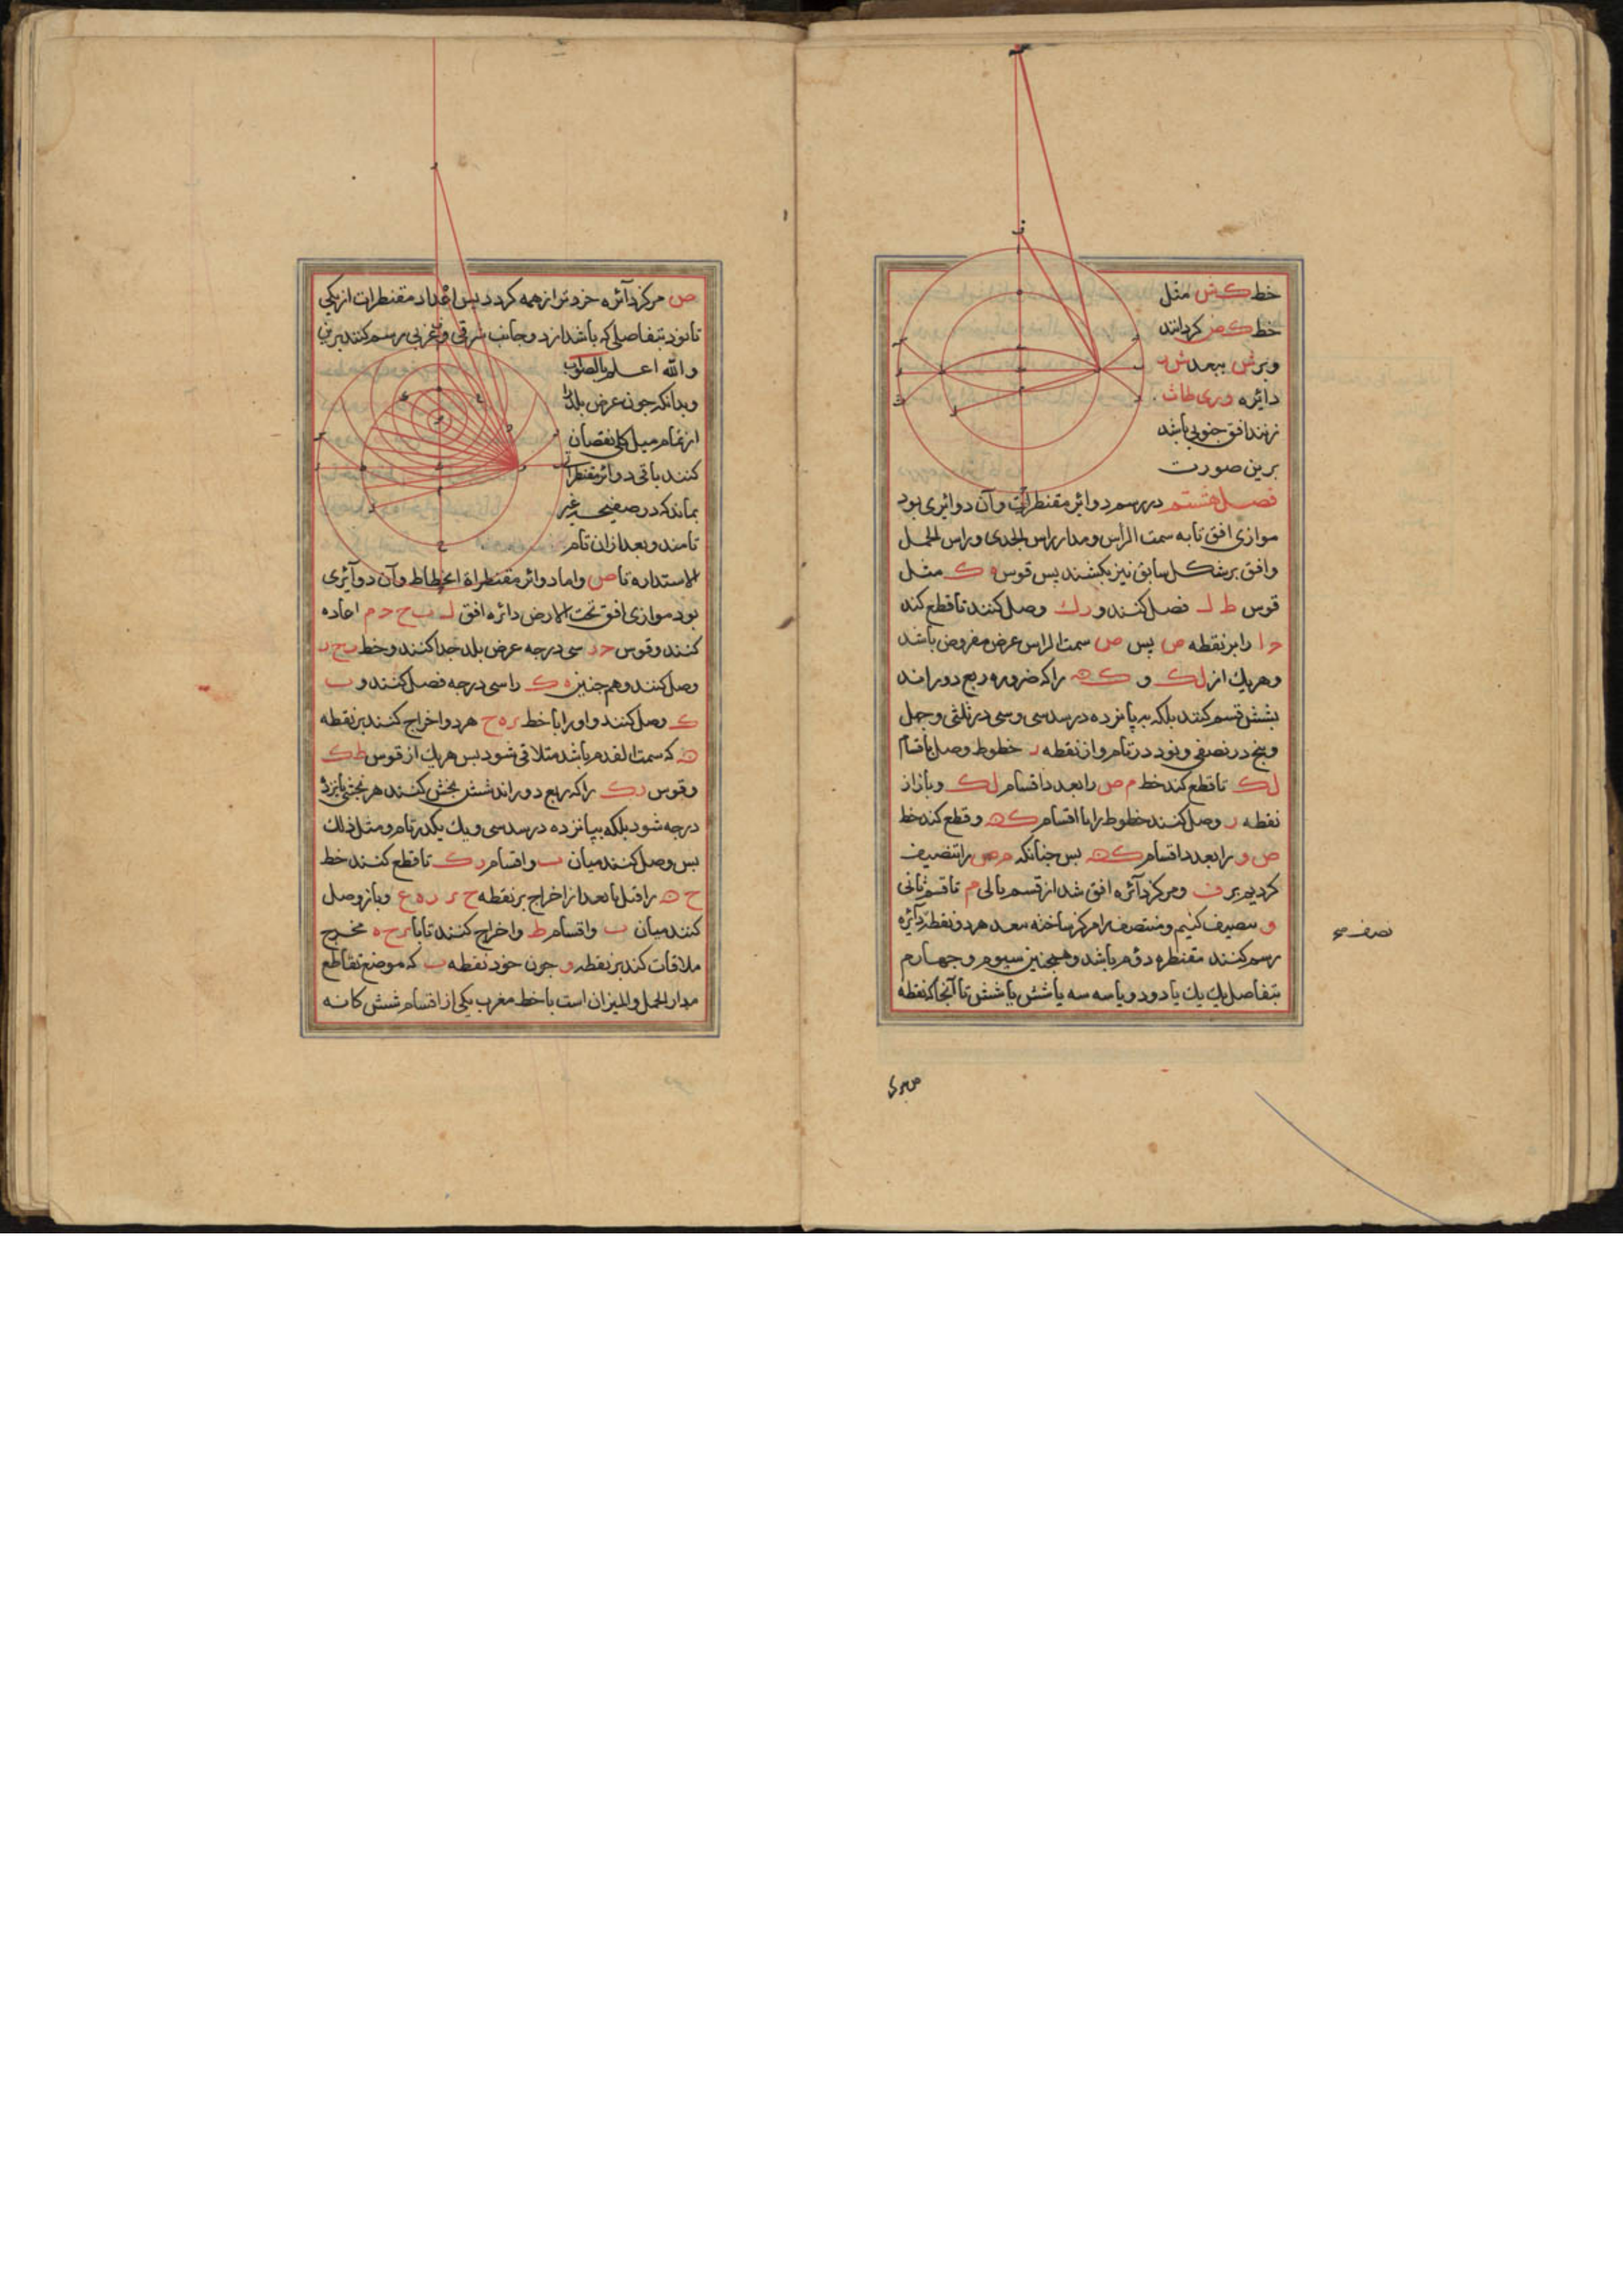 خط کش مثل
خط کص کردانند
وبرش ببعد ش
دائره
زنند افق جنوبی باشد
برین صورت
فصل هشتم در رسم دوائر مقنطرات وآن دوائری بود
موازی افق تا به سمت الراس ومدار راس الجدی وراس الحمل
وافق بر شکل سابق نیز بکشند پس قوس ه ک مثل
قوس ط ل فصل کنند و رک وصل کنند تا قطع کند
را بر نقطه ص پس ص سمت الراس عرض مفروض باشد
وهریک از ل ک و ک ه را که ضروره ربع دوراند
بشش قسم کنند بلکه به پانزده در سدسی وسی در ثلثی وچهل
وپنج در نصفی ونود در تام واز نقطه ر خطوط وصل با قسام
ل ک تا قطع کند خط م ص را بعدد اقسام ل ک وباز از
نقطه ر وصل کنند خطوط را با اقسام ک ه وقطع کند خط
ص و را بعدد اقسام ک ه پس چنانکه م ص را تنصیف
کردیم بر ف ومرکز دآئره افق شد از قسم یا لی م تا قسم ثانی
و تنصیف کنیم ومنتصف را مرکز ساخته ببعد هر دو نقطه دآئره
رسم کنند مقنطره دوم باشد وهمچنین سیوم و چهارم
بتفاصل یک یک یا دو دو یا سه سه یا شش یا شش تا آنجا که نقطه
نصف
ص مرکز دآئره خردتر از همه کردد پس اعداد مقنطرات از یکی
تا نود بتفاصلی که باشد از دو جانب شرقی وغربی رسم کنند برین
والله اعلم بالصواب
وبدانکه چون عرض بلد
از تمام میل کلی نقصان
کنند باقی دوائر مقنطرات
بماند که در صفیحه غیر
تامند وبعد ازان تام
الاستداره تا ص واما دوائر مقنطراة انحطاط وآن دوآئری
بود موازی افق تحت الارض دائره افق ل ب ح د م اعاده
کنند وقوس ح د سی درجه عرض بلد جدا کنند وخط
وصل کنند وهم چنین ه ک را سی درجه فصل کنند و ب
ک وصل کنند واو را با خط ر ه ح هر دو اخراج کنند بر نقطه
ه که سمت القدم باشد متلاقی شود پس هریک از قوس ط ک
وقوس ر ک را که ربع دوراند شش بخش کنند هر بخشی پانزده
درجه شود بلکه بپانزده در سدسی ویک یک در تام ومثل ذلک
پس وصل کنند میان ب واقسام ر ک تا قطع کنند خط
ح ه را قبل یا بعد از اخراج بر نقطه ح وباز وصل
کنند میان ب واقسام ط واخراج کنند تا با ر ح ه مخرج
ملاقات کند بر نقطه و چون خود نقطه ب که موضع تقاطع
مدار الحمل والمیزان است با خط مغرب یکی از اقسام شش کانه